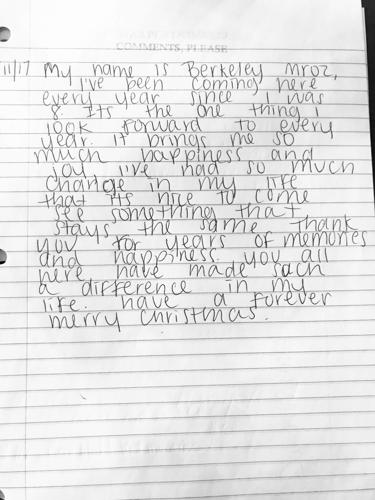 COMMENTS, PLEASE
11/17 My name is Berkeley Mroz,
I've been coming here
every year since I was
8. Its the one thing i
look forward to every
year. it brings me so
much happiness and
joy I've had so much
change in my life
that its nice to come
see something that
stays the same thank
you for years of memories
and happiness. you all
here have made such
a difference in my
life. have a forever
merry christmas.